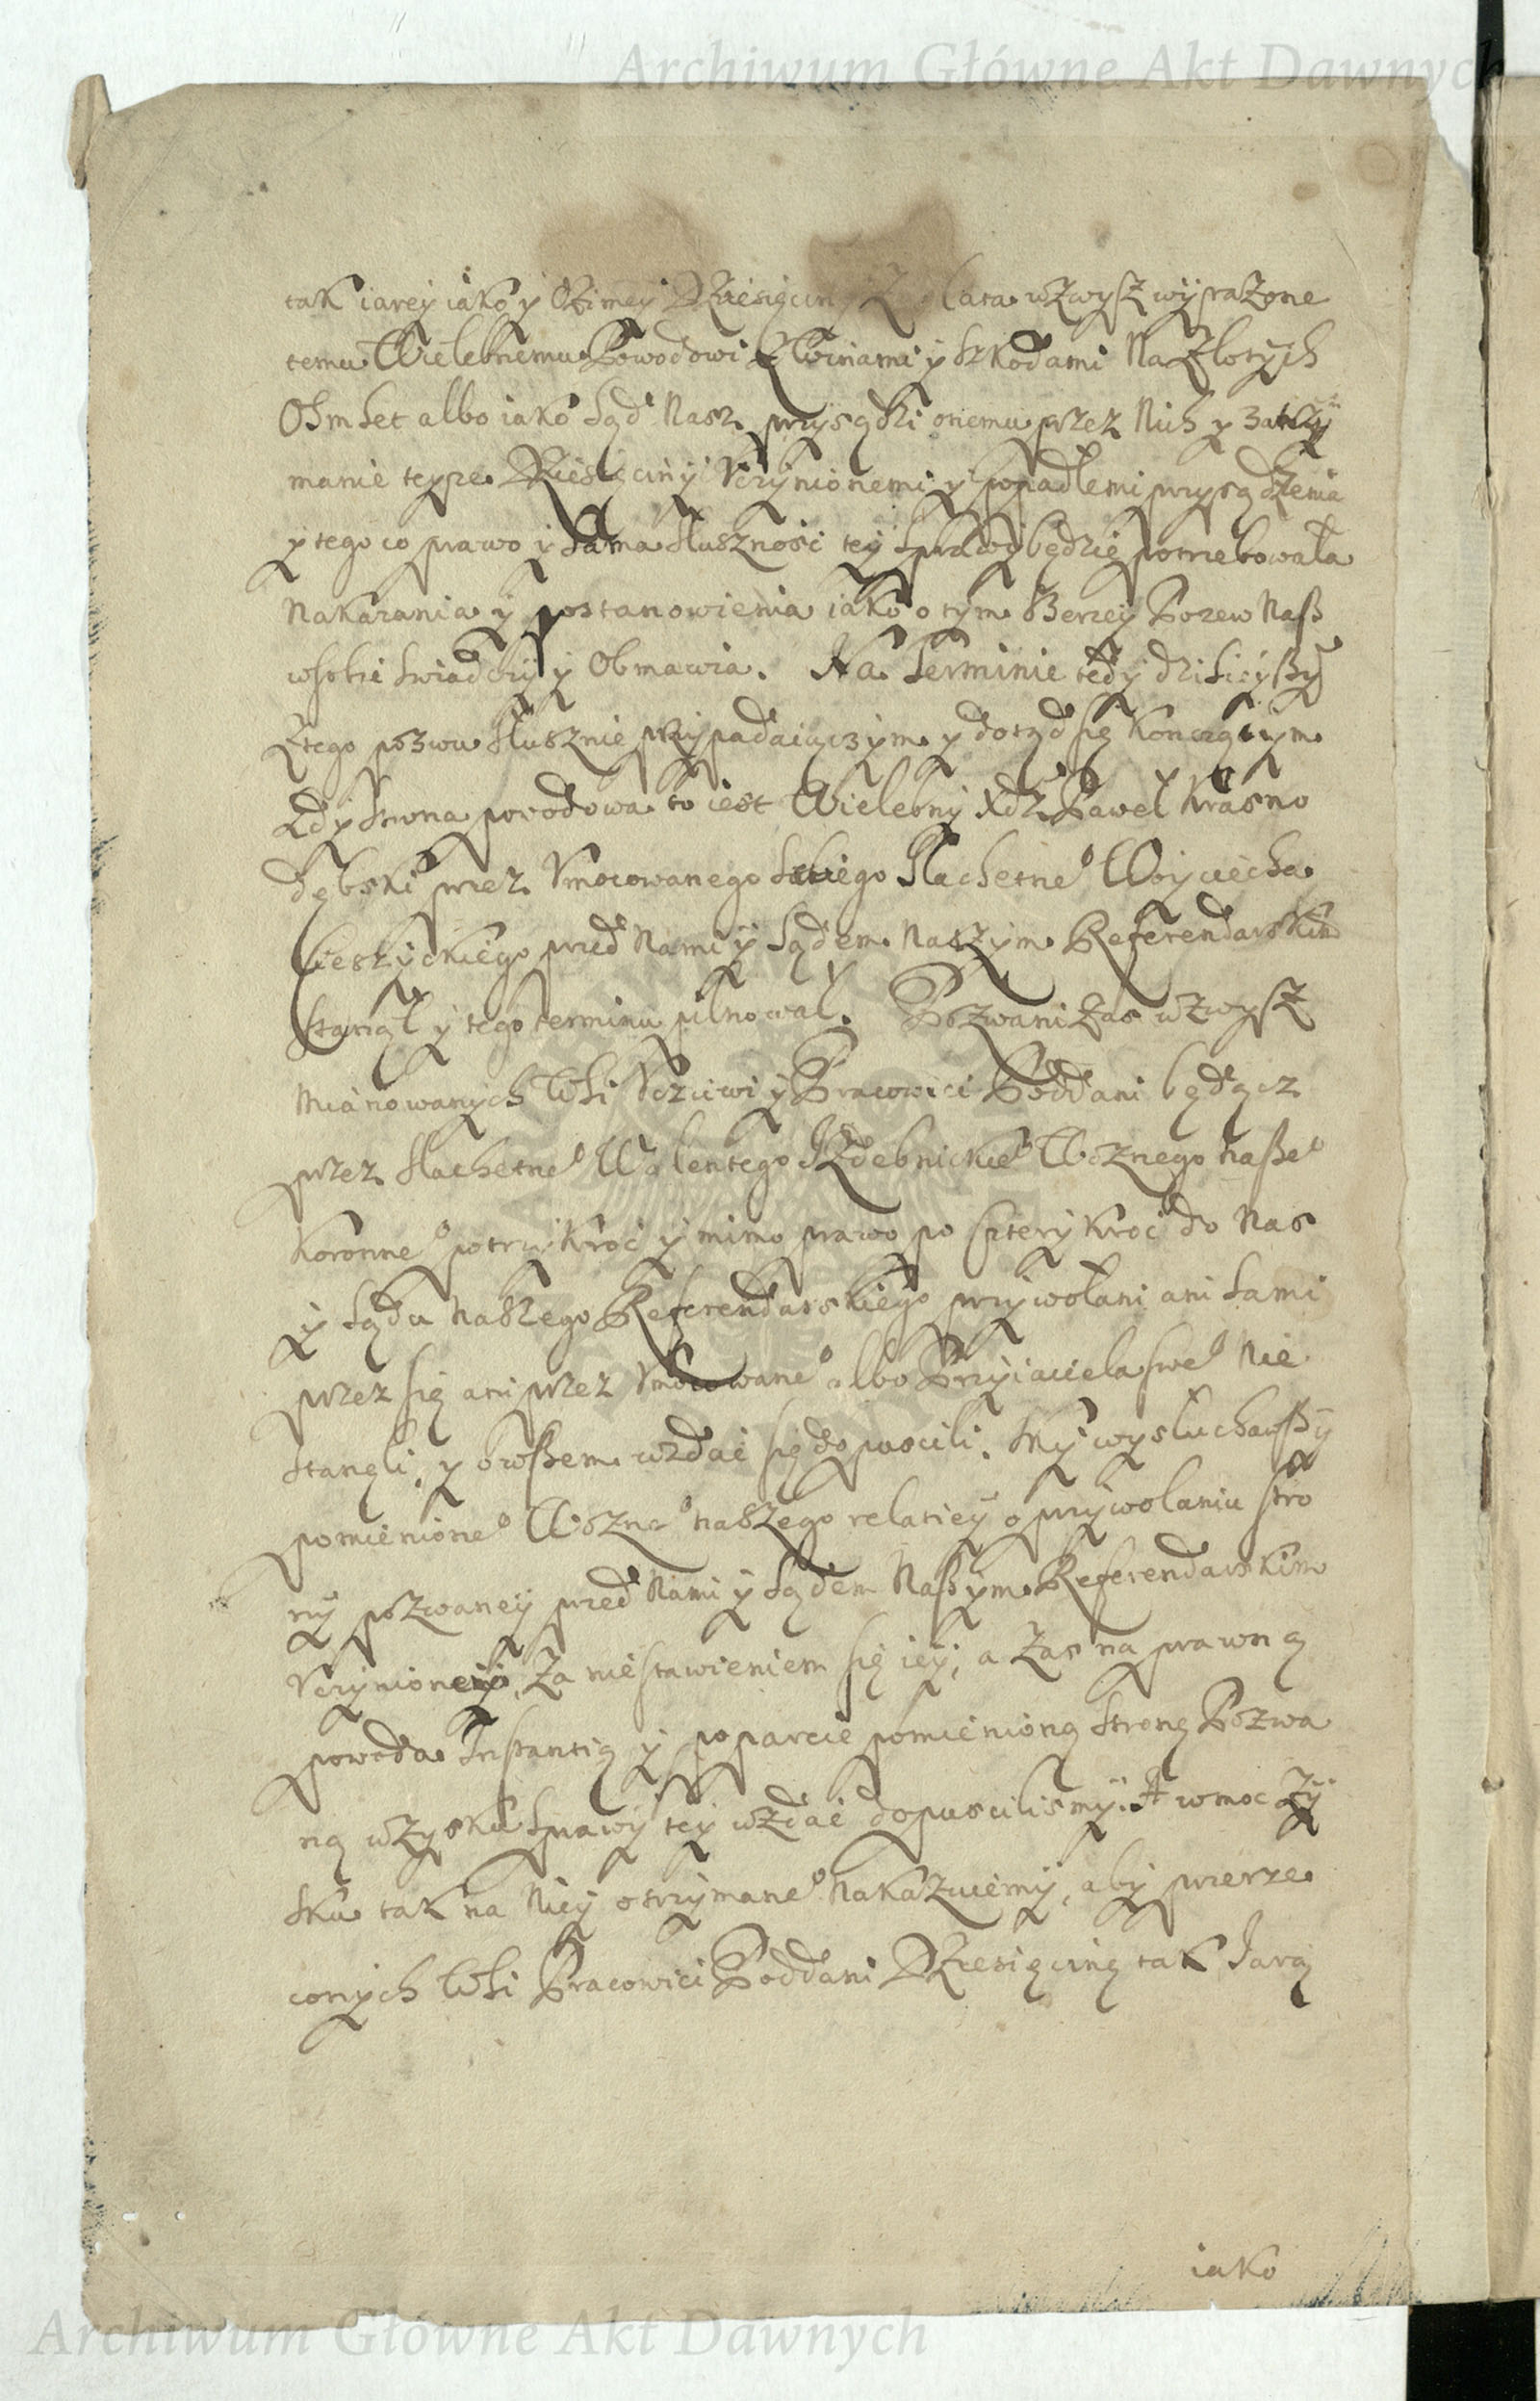 Archiwum Główne Akt Dawnych
tak iarey iako y Ozimey Dziesięciny Za lata wzwysz wyrazone
temu Wielebnemu Powodowi Z winami y Szkodami Na Zlotych
Osmset albo iako Sąd Nasz przysądzi onemu przez Nich y zatrzy
manie teyze Dziesięciny Vczynionemi y popadłemi przysądzenia
y tego co prawo y sama słusznosc tey sprawy będzie potrzebowała
Nakazania y postanowienia iako o tym szerzey Pozew Nasz
w sobie swiadczy y Obmawia. Na Terminie tedy dzisieyszym
Ztego pozwu słusznie przypadaiączym y dotąd się Konczączym
Gdy strona powodowa to iest Wielebny Xdz Paweł Krasno
dębski przez Vmocowanego swego Slachetne° Woyciecha
Cieszyckiego przed Nami y Sądem Naszym Referendarskim
stanął y tego terminu pilnował. Pozwani zas wzwysz
Mianowanych Wsi Vczciwi y Pracowici Poddani będącz
przez slachetne° Walentego Izdebnickie° Woznego nasze°
Koronne° potrzykroc y mimo prawo po czterykroc do Nas
y sądu Naszego Referendarskiego przywołani ani sami
przez się ani przez Vmocowane° albo Przyiaciela swe° Nie
stanęli, y owszem wzdac się dopuscili. My wysłuchawszy
pomienione° Wozne° naszego relatiey o przywołaniu stro
ny pozwaney przed Nami y Sądem Naszym Referendarskim
Vczynioney, Za niestawieniem się iey, a Zas na prawną
powoda Instantią y poparcie pomienioną stronę Pozwa
ną w zysku sprawy tey wzdac dopuscilismy. A w moc Zy
sku tak na Niey otrzymane° Nakazuiemy, aby przerze
conych Wsi Pracowici Poddani Dziesięcinę tak Iarą
iako
Archiwum Główne Akt Dawnych